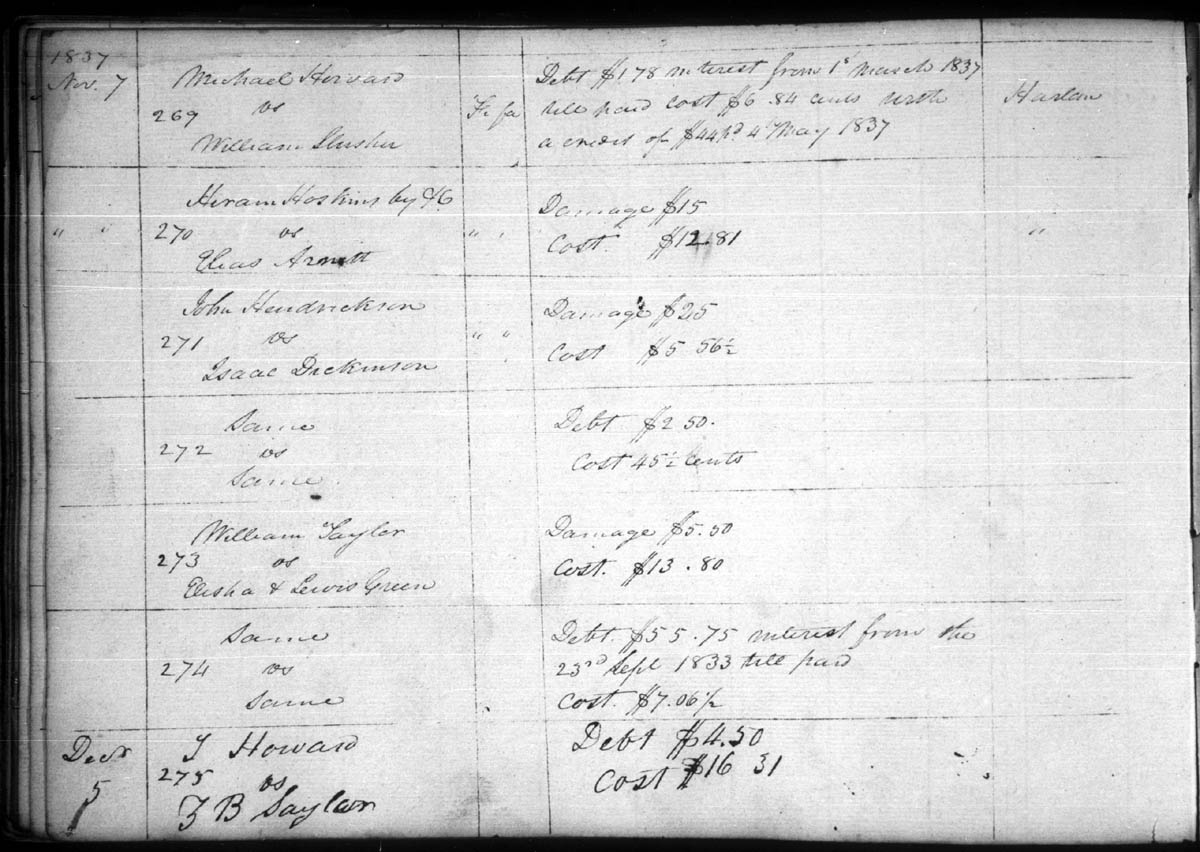 1837
Nov. 7 Michael Howard Fi fa Debt $178 interest from 1st March 1837 Harlan
269 vs till paid cost $6.84 cents with
William Slusher a credit of $44 pd 4th May 1837
Hiram Hoskins by &c Damage $15
" " 270 vs " " Cost. $12.81 "
Elias
John Hendrickson Damage $25
271 vs " " Cost $5 56½
Isaac Dickinson
Same Debt $2 50.
272 vs Cost 45½ Cents
Same
William Sayler Damage $5.50
273 vs Cost. $13.80
Elisha & Lewis Green
Same Debt. $55.75 interest from the
274 vs 23rd Sept 1833 till paid
Same Cost. $7.06½
Decr J Howard Debt $4.50
5 275 vs Cost $16 31
Z B Saylor